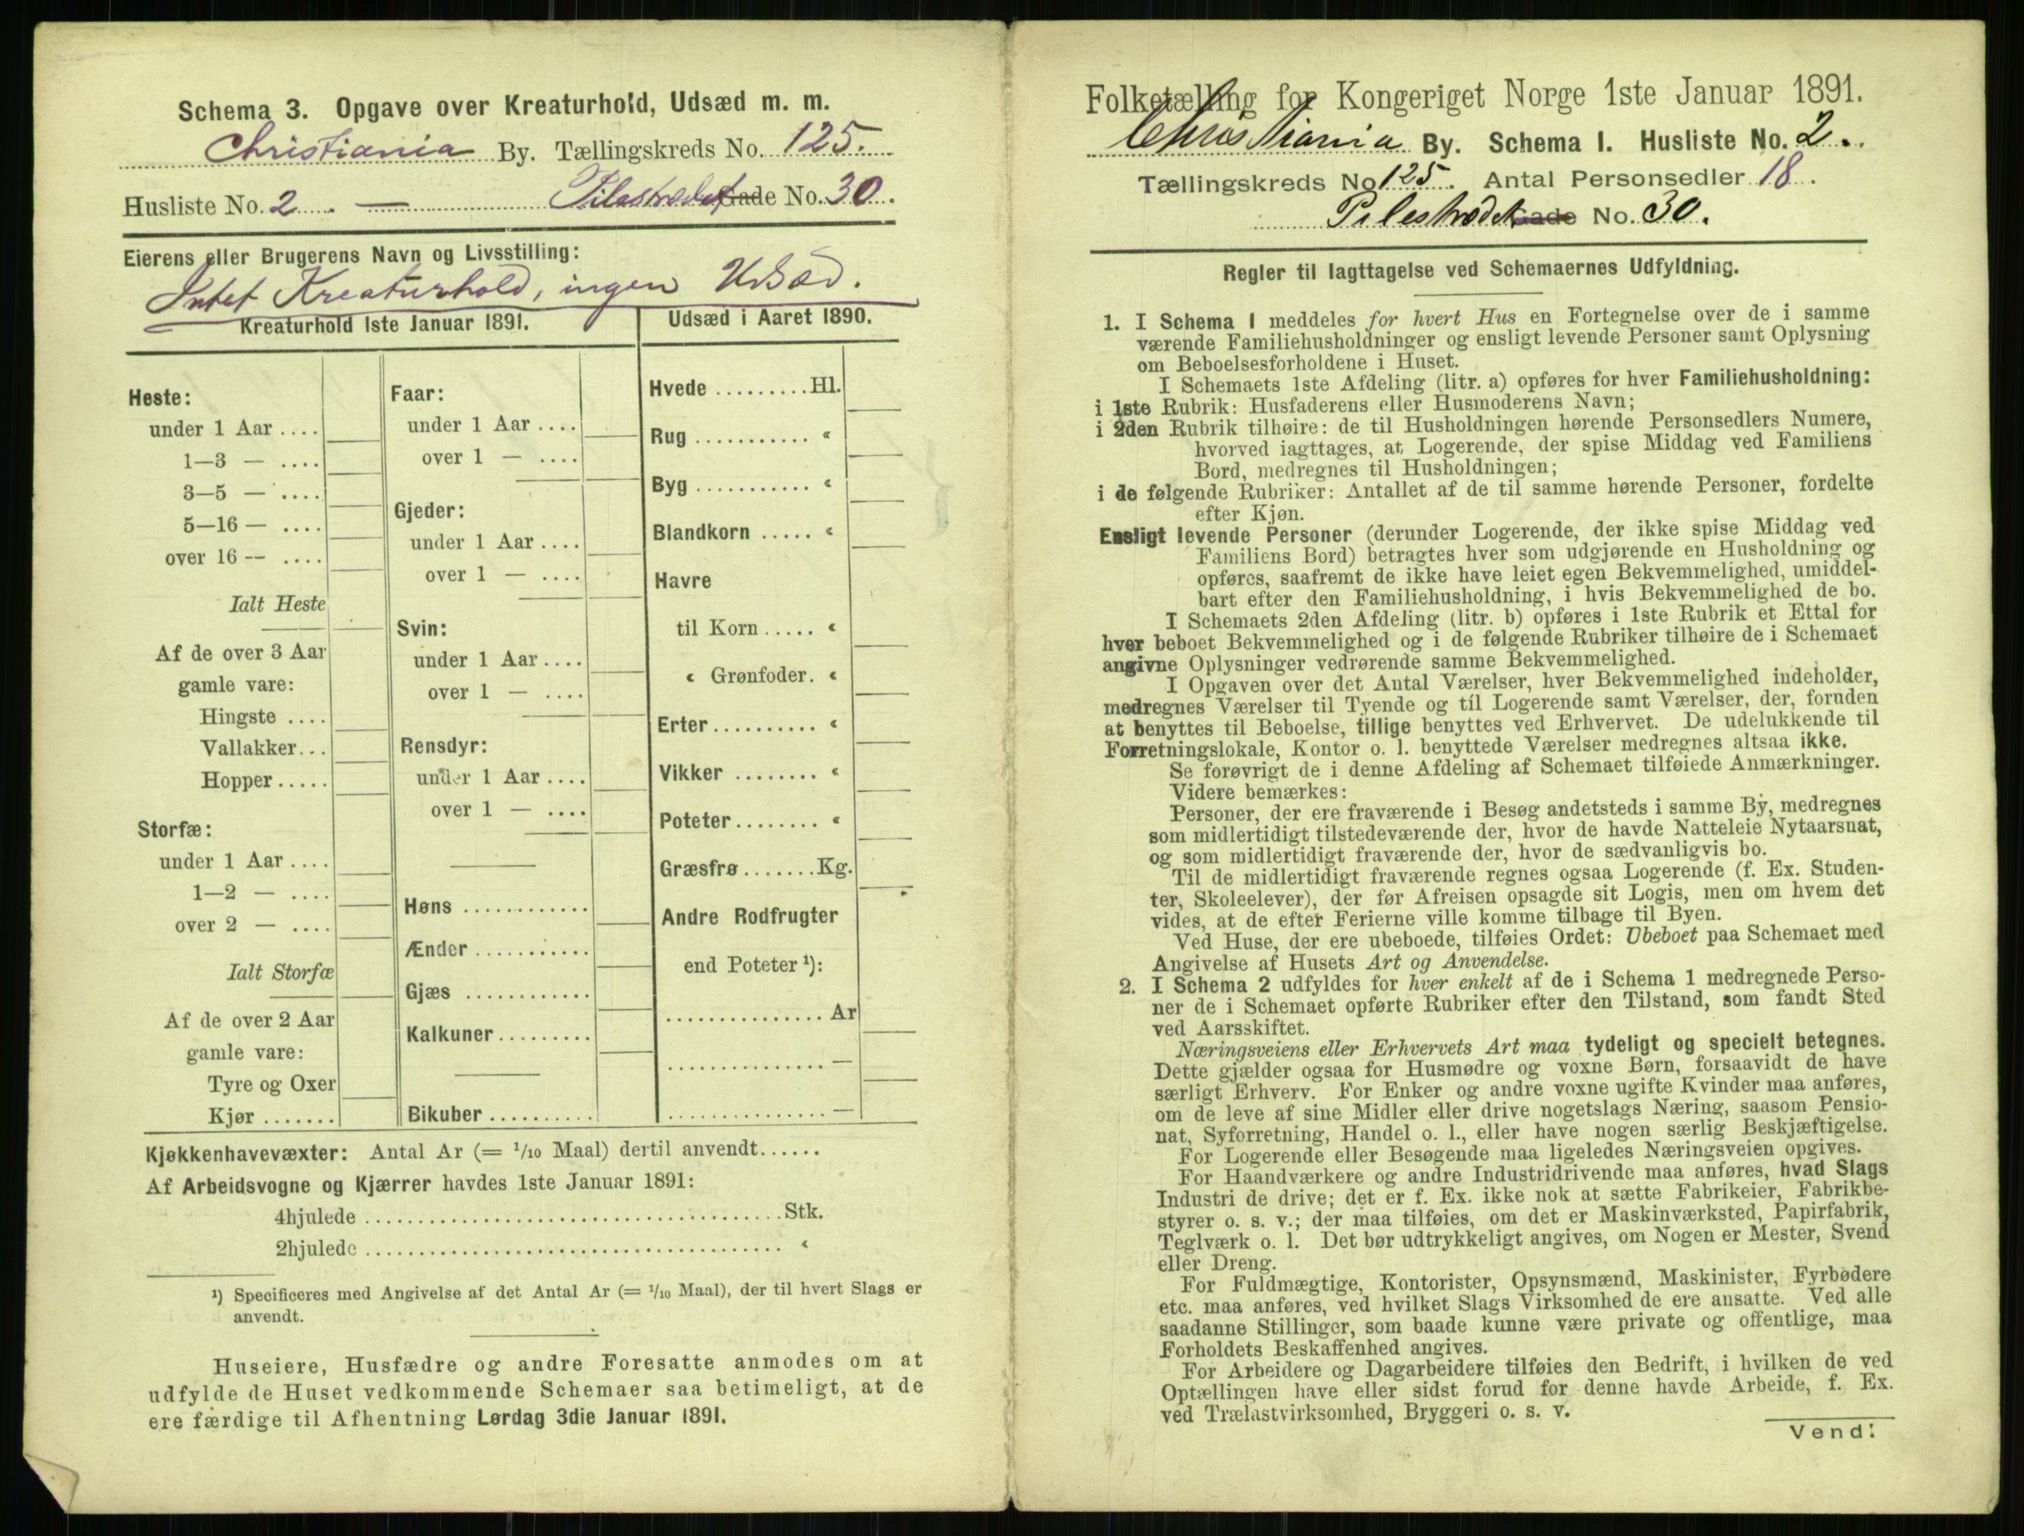 Schema 3. Opgave over Kreaturhold, Udsæd m. m.
Christiania By. Tællingskreds No. 125.
Husliste No. 2 — Pilestrædet Gade No. 30.
Eierens eller Brugerens Navn og Livsstilling:
Intet Kreaturhold, ingen Udsæd.
Kreaturhold 1ste Januar 1891.
Heste:
under 1 Aar ....
1—3 — ....
3—5 — ....
5—16 — ....
over 16 -- ....
Ialt Heste
Af de over 3 Aar
gamle vare:
Hingste ....
Vallakker...
Hopper.....
Storfæ:
under 1 Aar ....
1—2 — ....
over 2 — ....
Ialt Storfæ
Af de over 2 Aar
gamle vare:
Tyre og Oxer
Kjør .......
Faar:
under 1 Aar ....
over 1 — ....
Gjeder:
under 1 Aar ....
over 1 — ....
Svin:
under 1 Aar ....
over 1 — ....
Rensdyr:
under 1 Aar ....
over 1 — ....
Høns ............
Ænder ...........
Gjæs ............
Kalkuner .........
Bikuber ..........
Udsæd i Aaret 1890.
Hvede .........Hl.
Rug ........... «
Byg ........... «
Blandkorn ..... «
Havre
til Korn ..... «
« Grønfoder. «
Erter .......... «
Vikker ........ «
Poteter ........ «
Græsfrø .......Kg.
Andre Rodfrugter
end Poteter ¹):
............... Ar
............... —
............... —
Kjøkkenhavevæxter: Antal Ar (= 1/10 Maal) dertil anvendt......
Af Arbeidsvogne og Kjærrer havdes 1ste Januar 1891:
4hjulede .....................................Stk.
2hjulede ..................................... «
¹) Specificeres med Angivelse af det Antal Ar (= 1/10 Maal), der til hvert Slags er
anvendt.
Huseiere, Husfædre og andre Foresatte anmodes om at
udfylde de Huset vedkommende Schemaer saa betimeligt, at de
ere færdige til Afhentning Lørdag 3die Januar 1891.
Folketælling for Kongeriget Norge 1ste Januar 1891.
Christiania By. Schema I. Husliste No. 2.
Tællingskreds No 125. Antal Personsedler 18.
Pilestrædet Gade No. 30.
Regler til Iagttagelse ved Schemaernes Udfyldning.
1. I Schema 1 meddeles for hvert Hus en Fortegnelse over de i samme
værende Familiehusholdninger og ensligt levende Personer samt Oplysning
om Beboelsesforholdene i Huset.
I Schemaets 1ste Afdeling (litr. a) opføres for hver Familiehusholdning:
i 1ste Rubrik: Husfaderens eller Husmoderens Navn;
i 2den Rubrik tilhøire: de til Husholdningen hørende Personsedlers Numere,
hvorved iagttages, at Logerende, der spise Middag ved Familiens
Bord, medregnes til Husholdningen;
i de følgende Rubriker: Antallet af de til samme hørende Personer, fordelte
efter Kjøn.
Ensligt levende Personer (derunder Logerende, der ikke spise Middag ved
Familiens Bord) betragtes hver som udgjørende en Husholdning og
opføres, saafremt de ikke have leiet egen Bekvemmelighed, umiddel-
bart efter den Familiehusholdning, i hvis Bekvemmelighed de bo.
I Schemaets 2den Afdeling (litr. b) opføres i 1ste Rubrik et Ettal for
hver beboet Bekvemmelighed og i de følgende Rubriker tilhøire de i Schemaet
angivne Oplysninger vedrørende samme Bekvemmelighed.
I Opgaven over det Antal Værelser, hver Bekvemmelighed indeholder,
medregnes Værelser til Tyende og til Logerende samt Værelser, der, foruden
at benyttes til Beboelse, tillige benyttes ved Erhvervet. De udelukkende til
Forretningslokale, Kontor o. l. benyttede Værelser medregnes altsaa ikke.
Se forøvrigt de i denne Afdeling af Schemaet tilføiede Anmærkninger.
Videre bemærkes:
Personer, der ere fraværende i Besøg andetsteds i samme By, medregnes
som midlertidigt tilstedeværende der, hvor de havde Natteleie Nytaarsnat,
og som midlertidigt fraværende der, hvor de sædvanligvis bo.
Til de midlertidigt fraværende regnes ogsaa Logerende (f. Ex. Studen-
ter, Skoleelever), der før Afreisen opsagde sit Logis, men om hvem det
vides, at de efter Ferierne ville komme tilbage til Byen.
Ved Huse, der ere ubeboede, tilføies Ordet: Ubeboet paa Schemaet med
Angivelse af Husets Art og Anvendelse.
2. I Schema 2 udfyldes for hver enkelt af de i Schema 1 medregnede Perso-
ner de i Schemaet opførte Rubriker efter den Tilstand, som fandt Sted
ved Aarsskiftet.
Næringsveiens eller Erhvervets Art maa tydeligt og specielt betegnes.
Dette gjælder ogsaa for Husmødre og voxne Børn, forsaavidt de have
særligt Erhverv. For Enker og andre voxne ugifte Kvinder maa anføres,
om de leve af sine Midler eller drive nogetslags Næring, saasom Pensio-
nat, Syforretning, Handel o. l., eller have nogen særlig Beskjæftigelse.
For Logerende eller Besøgende maa ligeledes Næringsveien opgives.
For Haandværkere og andre Industridrivende maa anføres, hvad Slags
Industri de drive; det er f. Ex. ikke nok at sætte Fabrikeier, Fabrikbe-
styrer o. s. v.; der maa tilføies, om det er Maskinværksted, Papirfabrik,
Teglværk o. l. Det bør udtrykkeligt angives, om Nogen er Mester, Svend
eller Dreng.
For Fuldmægtige, Kontorister, Opsynsmænd, Maskinister, Fyrbødere
etc. maa anføres, ved hvilket Slags Virksomhed de ere ansatte. Ved alle
saadanne Stillinger, som baade kunne være private og offentlige, maa
Forholdets Beskaffenhed angives.
For Arbeidere og Dagarbeidere tilføies den Bedrift, i hvilken de ved
Optællingen have eller sidst forud for denne havde Arbeide, f. Ex.
ved Trælastvirksomhed, Bryggeri o. s. v.
Vend!